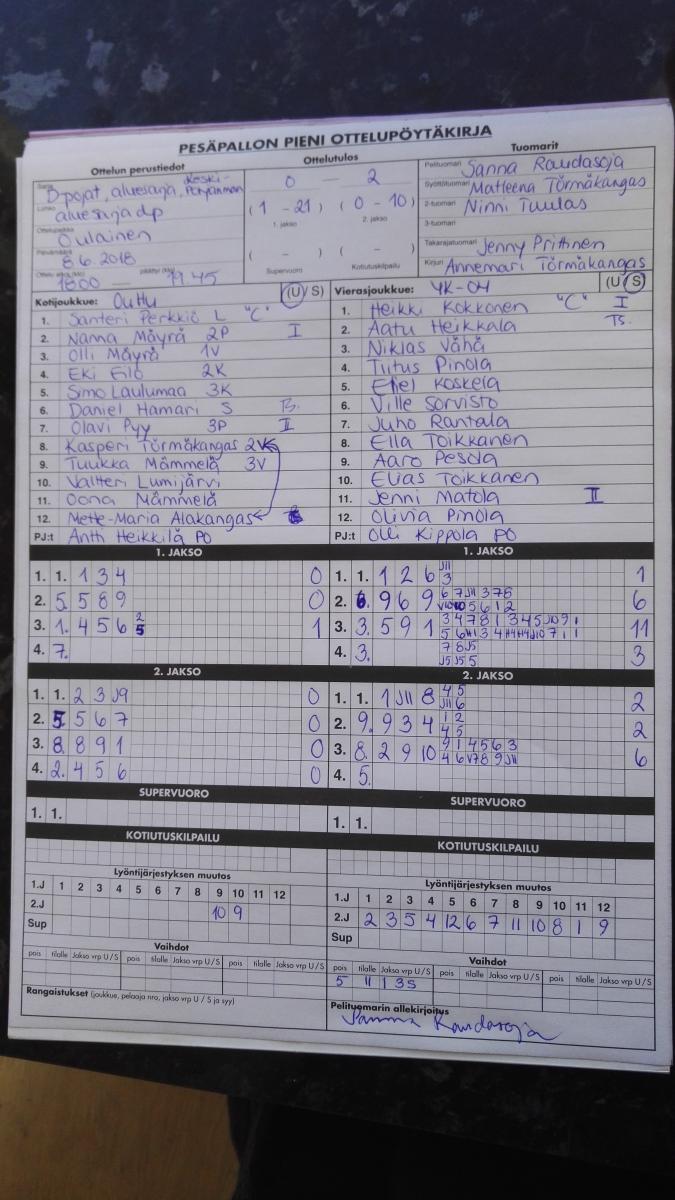 PESÄPALLON PIENI OTTELUPÖYTÄKIRJA
Ottelun perustiedot
D-pojat, aluesarja, Keski-Pohjanmaa
aluesarja dp
Oulainen
8.6.2018
1800 — 19.45
Ottelutulos
0 — 2
( 1 - 21 ) ( 0 - 10 )
1. jakso 2. jakso
( - ) ( - )
Supervuoro Kotiutuskilpailu
Tuomarit
Pelituomari Sanna Raudasoja
Syöttötuomari Matleena Törmäkangas
2-tuomari Ninni Tuulas
3-tuomari
Takarajatuomari Jenny Prithnen
Kirjuri Annemari Törmäkangas
Kotijoukkue: OuHu (U/S)
1. Santeri Perkkiö L "C"
2. Nanna Mäyrä 2P I
3. Olli Mäyrä 1V
4. Eki Eilo 2K
5. Simo Laulumaa 3K
6. Daniel Hamari S
7. Olavi Pyy 3P II
8. Kasperi Törmäkangas 2V
9. Tuukka Mämmelä 3V
10. Valtteri Lumijärvi
11. Oona Mämmelä
12. Mette-Maria Alakangas
PJ:t Antti Heikkilä PO
Vierasjoukkue: YK-04 (U/S)
1. Heikki Kokkonen "C" I
2. Aatu Heikkala
3. Niklas Vähä
4. Tiitus Pinola
5. Eliel Koskela
6. Ville Sorvisto
7. Juho Rantala
8. Ella Toikkanen
9. Aaro Pesola
10. Elias Toikkanen
11. Jenni Matola II
12. Olivia Pinola
PJ:t Olli Kippola PO
1. JAKSO
1. 1. 1 3 4 0
2. 5. 5 8 9 0
3. 1. 4 5 6 2 5 1
4. 7.
2. JAKSO
1. 1. 2 3 J9 0
2. 5. 5 6 7 0
3. 8. 8 9 1 0
4. 2. 4 5 6 0
SUPERVUORO
1. 1.
KOTIUTUSKILPAILU
Lyöntijärjestyksen muutos
1.J 1 2 3 4 5 6 7 8 9 10 11 12
2.J 10 9
Sup
Vaihdot
pois tilalle Jakso vrp U/S pois tilalle Jakso vrp U/S pois tilalle Jakso vrp U/S
Rangaistukset (joukkue, pelaaja nro, jakso vrp U / S ja syy)
1. JAKSO
1. 1. 1 2 6 J11 3 1
2. 6. 9 6 9 6
3. 3. 5 9 1 11
4. 3. 7 8 J5 3
2. JAKSO
1. 1. 1 J11 8 4 5 J11 6 2
2. 9. 9 3 4 1 2 4 5 2
3. 8. 2 9 10 9 1 4 5 6 3 4 6 V7 8 9 J11 6
4. 5.
SUPERVUORO
1. 1.
KOTIUTUSKILPAILU
Lyöntijärjestyksen muutos
1.J 1 2 3 4 5 6 7 8 9 10 11 12
2.J 2 3 5 4 12 6 7 11 10 8 1 9
Sup
Vaihdot
pois tilalle Jakso vrp U/S pois tilalle Jakso vrp U/S pois tilalle Jakso vrp U/S
5 11 1 3S
Pelituomarin allekirjoitus
Sanna Raudasoja